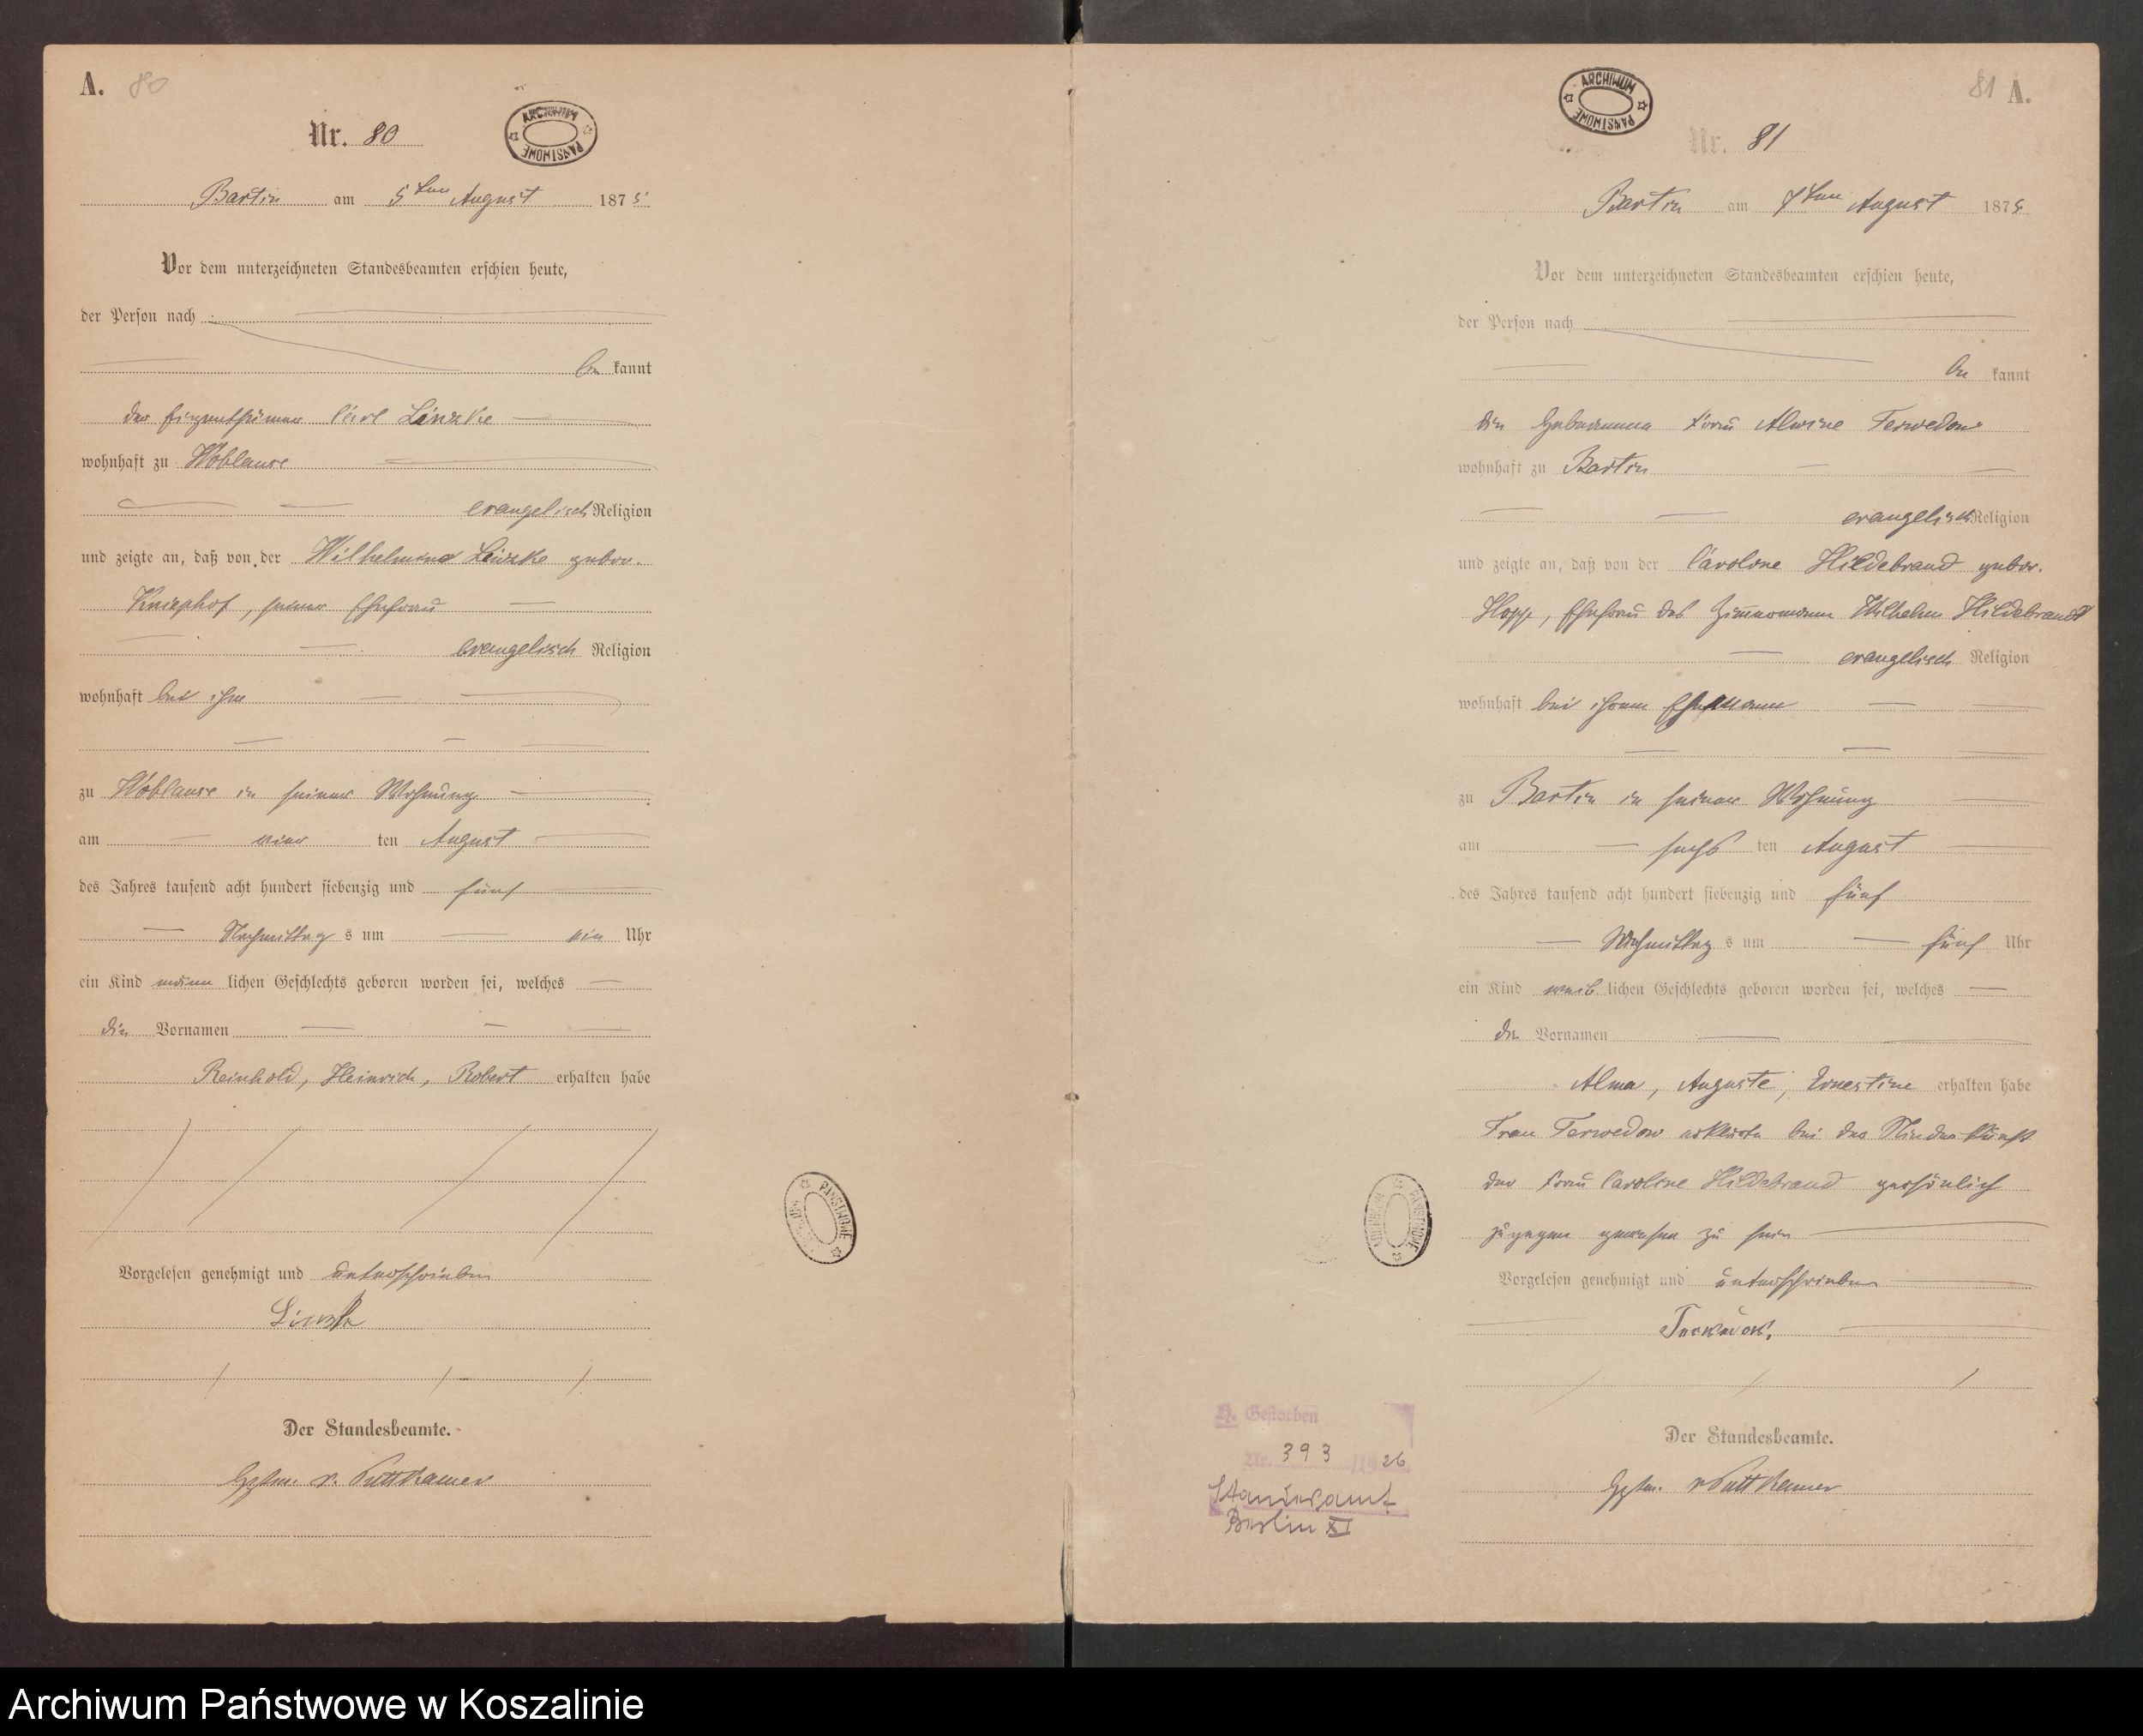 A. 80
ARCHIWUM PAŃSTWOWE
Nr. 80
Bartin am 5ten August 1875
Vor dem unterzeichneten Standesbeamten erschien heute,
der Person nach
be kannt
der Eigenthümer Carl
wohnhaft zu Woblanse
evangelisch Religion
und zeigte an, daß von der Wilhelmine gebor.
Kniephof, seiner Ehefrau
evangelisch Religion
wohnhaft bei ihm
zu Woblanse in seiner Wohnung
am vier ten August
des Jahres tausend acht hundert siebenzig und fünf
Nachmittag s um ein Uhr
ein Kind männ lichen Geschlechts geboren worden sei, welches
die Vornamen
Reinhold, Heinrich, Robert erhalten habe
PAŃSTWOWE
Vorgelesen genehmigt und unterschrieben
Der Standesbeamte.
v. Puttkamer
81 A.
ARCHIWUM PAŃSTWOWE
Nr. 81
Bartin am 7ten August 1875
Vor dem unterzeichneten Standesbeamten erschien heute,
der Person nach
be kannt
die Hebamme Frau Alwine Terwedow
wohnhaft zu Bartin
evangelisch Religion
und zeigte an, daß von der Caroline Hildebrand gebor.
Hopp, Ehefrau des Zimmermann Wilhelm Hildebrandt
evangelisch Religion
wohnhaft bei ihrem Ehemann
zu Bartin in seiner Wohnung
am sechs ten August
des Jahres tausend acht hundert siebenzig und fünf
Nachmittag s um fünf Uhr
ein Kind weib lichen Geschlechts geboren worden sei, welches
die Vornamen
Alma, Auguste, Ernestine erhalten habe
Frau Terwedow erklärte bei der Niederkunft
der Frau Caroline Hildebrand persönlich
zugegen gewesen zu sein
ARCHIWUM PAŃSTWOWE
Vorgelesen genehmigt und unterschrieben
Terwedow.
Der Standesbeamte.
v Puttkamer
Gestorben
Nr. 393 /1926
Standesamt
Berlin XI
Archiwum Państwowe w Koszalinie